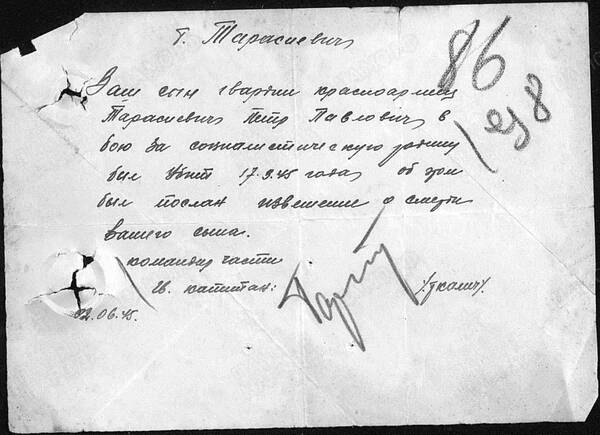 т. Тарасиевич
86
Ваш сын гвардии красноармеец
Тарасиевич Петр Павлович в
бою за социалистическую родину
был убит 17.3.45 года, об этом
был послан извещение о смерти
вашего сына.
командир части
гв. капитан:
02.06.45.